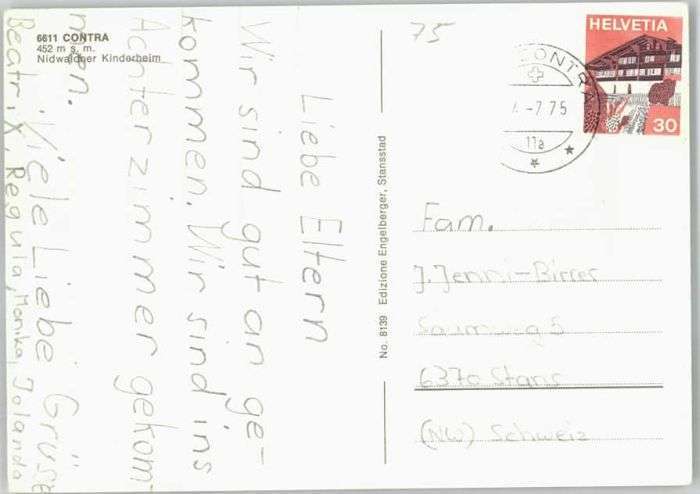 6611 CONTRA
452 m s. m.
Nidwaldner Kinderheim
Liebe Eltern
Wir sind gut an ge-
kommen. Wir sind ins
Achterzimmer gekom-
men.
Viele Liebe Grüsse
Beatrix, Regula, Monika, Jolanda
No. 8139 Edizione Engelberger, Stansstad
75
HELVETIA
30
CONTRA
-7.75
11a
Fam.
J. Jenni-Birrer
5
6370 Stans
(NW) Schweiz